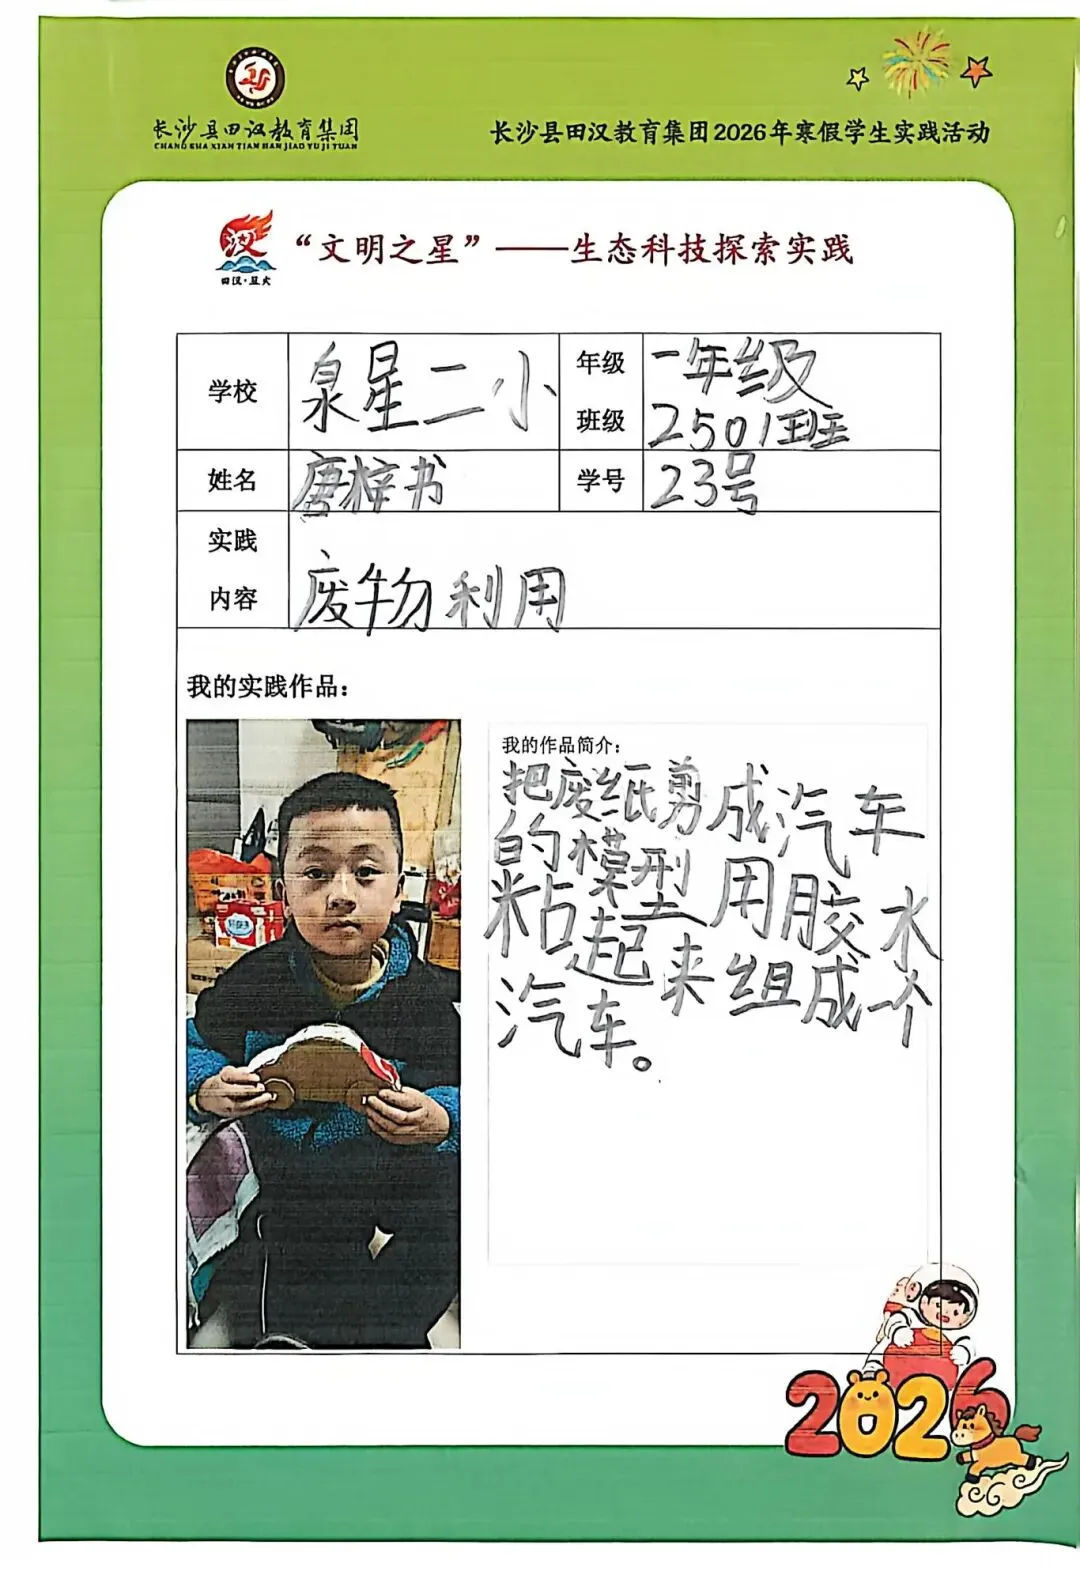 长沙县田汉教育集团
CHANG SHA XIAN TIAN HAN JIAO YU JI TUAN
长沙县田汉教育集团2026年寒假学生实践活动
汉
田汉·星火
“文明之星”——生态科技探索实践
学校 泉星二小 年级 一年级
班级 2501班
姓名 唐梓书 学号 23号
实践内容 废物利用
我的实践作品：
我的作品简介：
把废纸剪成汽车
的模型用胶水
粘起来组成一个
汽车。
2026